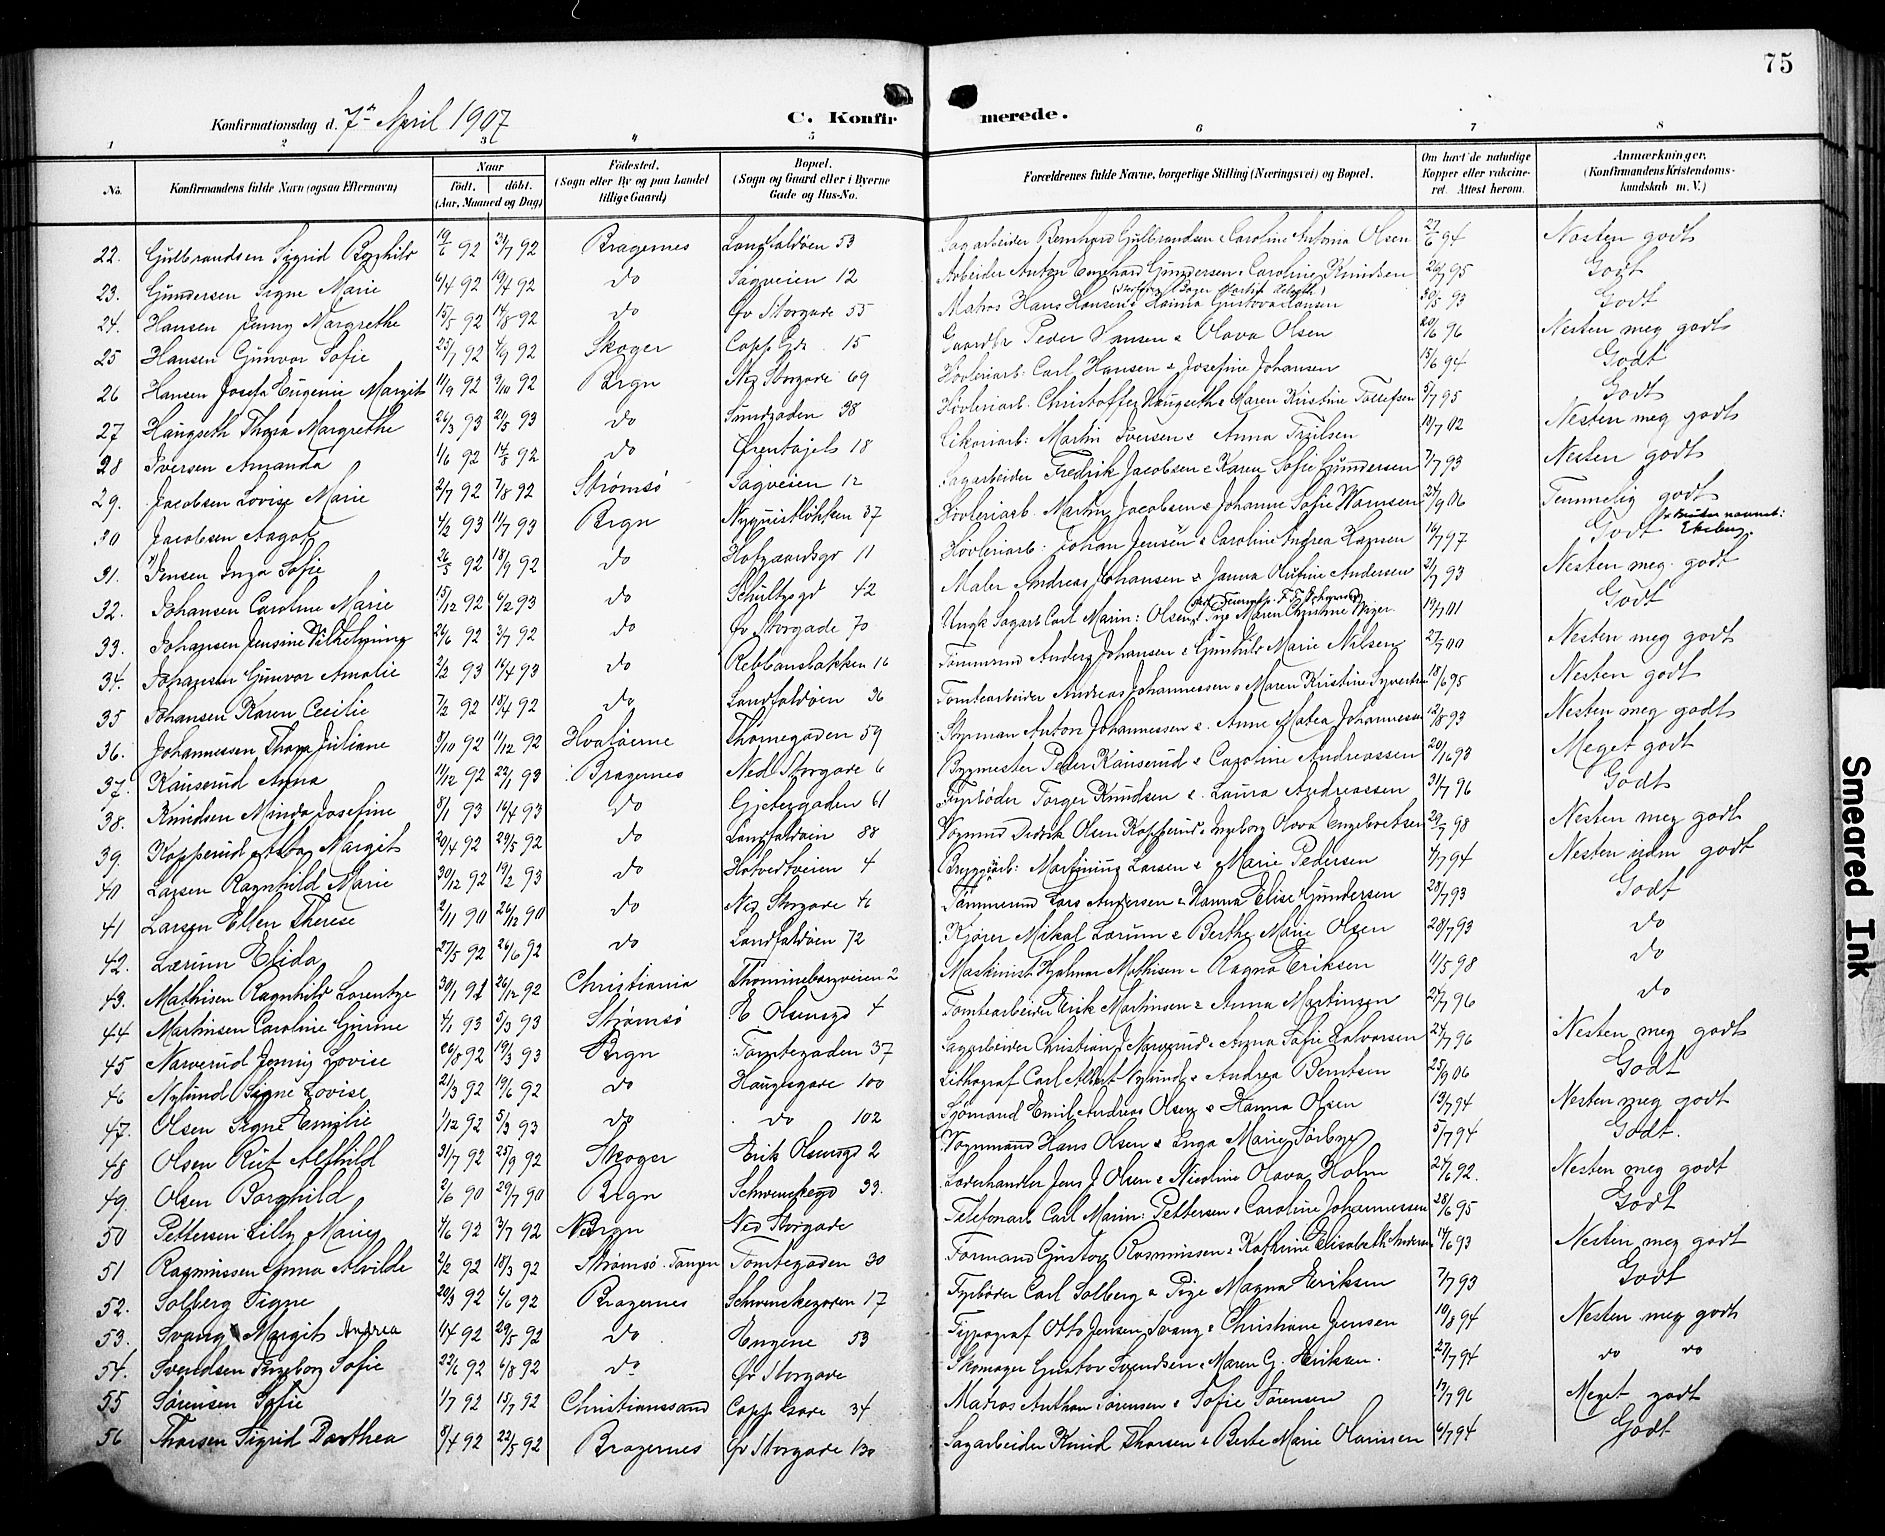 75
Konfirmationsdag d. 7de April 1907
C. Konfirmerede.
1 2 3 4 5 6 7 8
No.
Konfirmandens fulde Navn (ogsaa Efternavn)
Naar
født. døbt.
(Aar, Maaned og Dag)
Fødested.
(Sogn eller By og paa Landet
tillige Gaard)
Bopæl.
(Sogn og Gaard eller i Byerne
Gade og Hus-No.
Forældrenes fulde Navne, borgerlige Stilling (Næringsvei) og Bopæl.
Om havt de naturlige
Kopper eller vakcine-
ret. Attest herom.
Anmærkninger.
(Konfirmandens Kristendoms-
kundskab m. V.)
22. Gulbrandsen Sigrid 19/6 92 31/7 92 Bragernes Landfaldøen 53 Sagarbeider Bernhard Gulbrandsen & Caroline Antonia Olsen 27/6 94 Nesten godt
23. Gundersen Signe Marie 6/4 92 19/4 92 do Sagveien 12 Arbeider Anton Gundersen & Caroline Knudsen 26/7 95 Godt
24. Hansen Jenny Margrethe 15/5 92 14/8 92 do Øv Storgade 55 Matros Hans Hansen & Hanna Gustava Hansen 30/5 93 Godt
25 Hansen Gunvor Sofie 25/7 92 4/9 92 Skoger Capp. Gd. 15 Gaardbr Peder Hansen & Olava Olsen 20/6 96 Nesten meg godt
26 Hansen Josefa Eugenie Margit 11/9 92 9/10 92 Brgn Ned Storgade 69 Høvleriarb: Carl Hansen & Josefine Johansen 15/6 94 Godt
27 Haugseth Thora Margrethe 26/3 93 21/5 93 do Sundgaden 38 Høvleriarb. Christoffer Haugseth & Maren Kristine Tollefsen 5/7 95 Godt
28 Iversen Amanda 1/6 92 14/8 92 do Ørentajet 18 Martin Iversen & Anna 19/7 02 Nesten meg godt
29. Jacobsen Lovise Marie 2/7 92 7/8 92 Strømsø Sagveien 12 Sagarbeider Fredrik Jacobsen & Karen Sofie Gundersen 7/7 93 Nesten godt
30 Jacobsen Aagot 4/2 93 11/7 93 Brgn Nyquistløkken 37 Høvleriarb. Martin Jacobsen & Johanne Sofie 24/9 06 Temmelig godt
31. Jensen Inga Sofie 26/5 92 18/9 92 do Hofgaardsgd 11 Høvleriarb: Johan Jensen & Caroline Andrea Hansen 16/7 97 Godt Ekeberg.
32. Johansen Caroline Marie 15/12 92 6/2 93 do Schultzgd 42 Maler Andreas Johansen & Janna Olufine Andersen 21/7 93 Nesten meg. godt
33. Johansen Jensine Vilhelmine 26/6 92 3/7 92 do Øv Storgade 70 Ungk Sagarb Carl Marin: Olsen & Pige Maren Christine 19/7 01 Godt
34. Johansen Gunvor Amalie 2/2 93 16/4 93 do Rebbansbakken 16 Tømmermd Anders Johansen & Gunhild Marie Nilsen 27/7 00 Nesten meg godt
35 Johansen Karen Cecilie 7/2 92 18/4 92 do Landfaldøen 36 Tomtearbeider Andreas Johannessen & Maren Kristine 18/6 95 Nesten godt
36. Johannessen Thora Juliane 8/10 92 11/12 92 Hvaløerne Thornegaden 59 Styrman Anton Johannessen & Anne Matea Johannessen 12/8 93 Nesten meg godt
37. Kauserud Anna 11/12 92 22/1 93 Bragernes Ned Storgade 6 Bygmester Peder Kauserud & Caroline Andreassen 20/6 93 Meget godt
38. Knudsen Minda Josefine 8/1 93 16/4 93 do Gjetergaden 61 Fyrbøder Torger Knudsen & Laura Andreassen 31/7 96 Godt
39. Kopperud Margit 20/4 92 29/5 92 do Landfaldøen 88 Vognmd Didrik Olsen Kopperud & Ingeborg Olava Engebretsen 29/7 98 Nesten meg godt
40 Larsen Ragnhild Marie 30/12 92 19/2 93 do Hotvedtveien 4 Bryggarb: Martinius Larsen & Marie Pedersen 4/7 94 Nesten udm godt
41 Larsen Ellen Therese 2/11 90 26/12 90 do Ned Storgade 46 Tømmermd Lars Andersen & Hanna Elise Gundersen 28/7 93 Godt
42. Lærum Elida 27/5 92 26/6 92 do Landfaldøen 72 Kjører Mikal Lærum & Berthe Marie Olsen 28/7 93 do
43. Mathisen Ragnhild Lorentze 30/1 92 26/12 92 Christiania 2 Maskinist Hjalmar Mathisen & Ragna Eriksen 11/5 98 do
44 Martinsen Caroline 4/1 93 5/3 93 Strømsø E Olsensgd 4 Tomtearbeider Erik Martinsen & Anna Martinsen 24/7 96 do
45 Narverud Jenny Lovise 26/8 92 19/3 93 Brgn Tomtegaden 37 Sagarbeider Christian J Narverud & Anna Sofie Halvorsen 24/7 96 Nesten meg godt
46 Nylund Signe Lovise 21/3 92 19/6 92 do Haugesgade 100 Lithograf Carl Albert Nylund & Andrea Berntsen 25/9 06 Godt
47. Olsen Signe Emilie 1/12 92 5/3 93 do do 102 Sjømand Emil Andreas Olsen & Hanna Olsen 13/7 94 Nesten meg godt
48 Olsen Rut Alfhild 31/7 92 25/9 92 Skoger Erik Olsensgd 2 Vognmand Hans Olsen & Inga Marie Sørbye 5/7 94 Godt.
49. Olsen Borghild 2/6 90 29/7 90 Brgn Schwenckegd 39. Læderhandler Jens J Olsen & Nicoline Olava Holm 24/6 92. Nesten meg godt
50 Pettersen Lilly Marie 4/6 92 3/7 92 Brgn Ned Storgade Telefonarb Carl Marin: Pettersen & Caroline Johannessen 28/6 95 Godt
51 Rasmussen Anna Alvilde 2/2 92 18/3 92 Strømsø. Tangen Tomtegaden 30 Formand Gustav Rasmussen & Kathrine Elisabeth Andersen 14/6 93 Nesten meg godt
52. Solberg Signe 20/3 92 6/6 92 Bragernes Schwenckegaden 17 Fyrbøder Carl Solberg & Pige Magna Eriksen 7/7 93 Godt
53. Svang Margit Andrea 4/4 92 29/5 92 do Engene 53 Typograf Otto Jensen Svang & Christiane Jensen 10/8 94 Nesten meg godt
54. Svendsen Ingeborg Sofie 22/6 92 6/8 92 do Øv Storgade Skomager Gustav Svendsen & Maren G. Henriksen. 27/7 94 do do
55 Sørensen Sofie 1/7 92 15/7 92 Christianssand Capp. Gade 34 Matros Anthon Sørensen & Sofie Sørensen 13/7 96 Meget godt
56 Thorsen Sigrid Dorthea 8/4 92 22/5 92 Bragernes Øv Storgade 130 Sagarbeider Knud Thorsen & Berte Marie 6/7 94 Godt
Smeared Ink